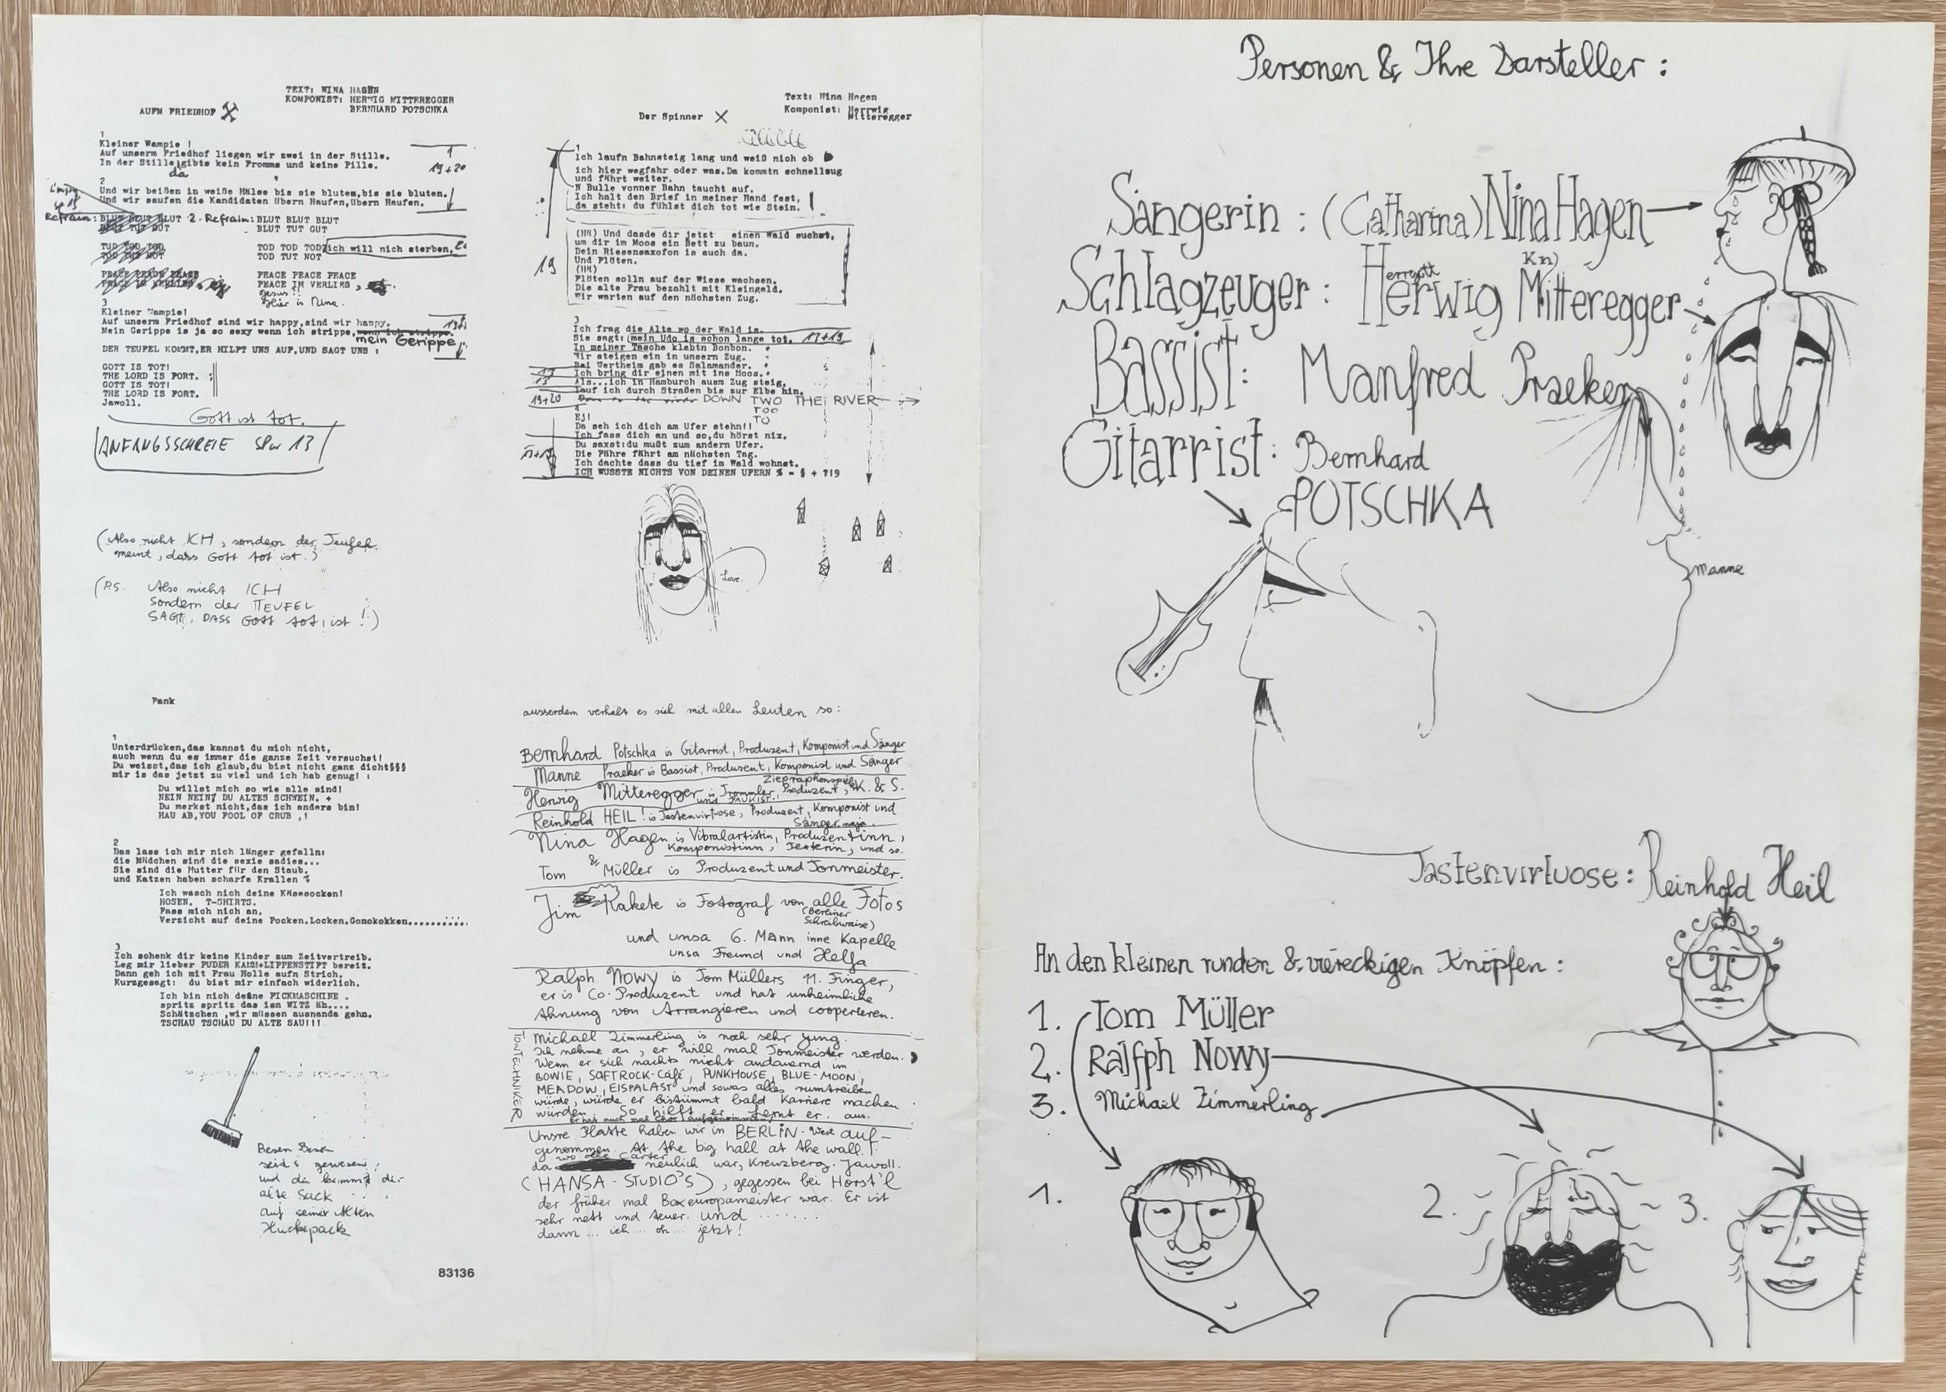 TEXT: NINA HAGEN
KOMPONIST: HERWIG MITTEREGGER
BERNHARD POTSCHKA
AUFM FRIEDHOF
1
Kleiner Wampie !
Auf unserm Friedhof liegen wir zwei in der Stille.
In der Stille gibts kein Promms und keine Pille.
da
19+20
2
Und wir beißen in weiße Hälse bis sie bluten,bis sie bluten.
Und wir saufen die Kandidaten übern Haufen,übern Haufen.
Refrain: BLUT BLUT BLUT 2. Refrain: BLUT BLUT BLUT
BLUT TUT GUT
TOD TOD TOD TOD TOD TOD ich will nich sterben.
TOD TUT NOT TOD TUT NOT
PEACE PEACE PEACE PEACE PEACE PEACE
PEACE IM VERLIES,
Jesus!!
Hier is Nina.
3
Kleiner Wampie!
Auf unserm Friedhof sind wir happy,sind wir happy.
Mein Gerippe is ja so sexy wenn ich strippe,wenn ich strippe.
mein Gerippe
DER TEUFEL KOMMT,ER HILFT UNS AUF,UND SAGT UNS :
GOTT IS TOT!
THE LORD IS FORT.
GOTT IS TOT!
THE LORD IS FORT.
Jawoll.
Gott ist tot.
ANFANGSSCHREIE SPur 13
(Also nicht ICH, sondern der Teufel
meint, dass Gott tot ist.)
(P.S. Also nicht ICH
sondern der TEUFEL
SAGT, DASS Gott tot ist!)
Pank
1
Unterdrücken,das kannst du mich nicht,
auch wenn du es immer die ganze Zeit versuchst!
Du weisst,das ich glaub,du bist nicht ganz dicht§§§
mir is das jetzt zu viel und ich hab genug! :
Du willst mich so wie alle sind!
NEIN NEIN? DU ALTES SCHWEIN. +
Du merkst nicht,das ich anders bin!
HAU AB,YOU FOOL OF CRUB ,!
2
Das lass ich mir nich länger gefalln:
die Mädchen sind die sexie sadies...
Sie sind die Mutter für den Staub.
und Katzen haben scharfe Krallen %
Ich wasch nich deine Käsesocken!
HOSEN. T-SHIRTS.
Fass mich nich an.
Verzicht auf deine Pocken,Locken,Gonokokken..........
3
Ich schenk dir keine Kinder zum Zeitvertreib.
Leg mir lieber PUDER KAMM+LIPPENSTIFT bereit.
Dann geh ich mit Frau Holle aufn Strich.
Kurzgesagt: du bist mir einfach widerlich.
Ich bin nich deine FICKMASCHINE .
spritz spritz das isn WITZ Hh....
Schätzchen ,wir müssen ausnanda gehn.
TSCHAU TSCHAU DU ALTE SAU!!!
Besen Besen
seid's gewesen!
und da kommt der
alte Sack
auf seiner Alten
Huckepack
83136
Text: Nina Hagen
Komponist: Herrwig
Mitteregger
Der Spinner
1
Ich laufn Bahnsteig lang und weiß nich ob
ich hier wegfahr oder was.Da kommtn schnellzug
und fährt weiter.
N Bulle vonner Bahn taucht auf.
Ich halt den Brief in meiner Hand fest,
da steht: du fühlst dich tot wie Stein.
(HH) Und dasde dir jetzt einen Wald suchst,
um dir im Moos ein Bett zu baun.
Dein Riesensaxofon is auch da.
Und Flöten.
(HH)
Flöten solln auf der Wiese wachsen.
Die alte Frau bezahlt mit Kleingeld.
Wir warten auf den nächsten Zug.
19
3
Ich frag die Alte wo der Wald is.
Sie sagt: mein Udo is schon lange tot.
In meiner Tasche klabtn Bonbon.
Wir steigen ein in unsern Zug.
Bei Wertheim gab es Salamander.
Ich bring dir einen mit ins Moos.
Als...ich in Hamburch ausm Zug steig,
lauf ich durch Straßen bis zur Elbe hin.
19+20 DOWN TWO THE RIVER
TOO
TO
4
EJ!
Da seh ich dich am Ufer stehn!!
Ich fass dich an und so,du hörst nix.
Du saxst:du mußt zum andern Ufer.
Die Fähre fährt am nächsten Tag.
Ich dachte dass du tief im Wald wohnst.
ICH WUSSTE NICHTS VON DEINEN UFERN % - § + ?!9
Love.
ausserdem verhält es sich mit allen Leuten so:
Bernhard Potschka is Gitarrist, Produzent, Komponist und Sänger
Manne Praeker is Bassist, Produzent, Komponist und Sänger
Herwig Mitteregger is Trommler, Produzent, K. & S.
und PAUKIST!
Reinhold HEIL! is Tastenvirtuose, Produzent, Komponist und
Sänger naja.
Nina Hagen is Vibralartistin, Produzentinn,
Komponistinn, Texterin, und so.
&
Tom Müller is Produzent und Tonmeister.
Jim Rakete is Fotograf von alle Fotos
(Berliner
Schreibweise)
und unsa 6. Mann inne Kapelle
unsa Freund und Helfa
Ralph Nowy is Tom Müllers 11. Finger,
er is Co-Produzent und hat unheimliche
Ahnung von Arrangieren und cooperieren.
TONTECHNIKER
Michael Zimmerling is noch sehr jung.
Ich nehme an, er will mal Tonmeister werden.
Wenn er sich nachts nicht andauernd in
BOWIE, SOFTROCK-Café, PUNKHOUSE, BLUE-MOON,
MEADOW, EISPALAST und sowas alles rumtreiben
würde, würde er bistimmt bald Karriere machen
würden. So hilft er, lernt er aus.
er hat auch mal Chor aufgenommen.
Unsre Platte haben wir in BERLIN-West auf-
genommen. At the big hall at the wall!
wo der Carter
da neulich war, Kreuzberg. Jawoll.
(HANSA-STUDIO'S), gegessen bei Horst'l
der früher mal Boxeuropameister war. Er ist
sehr nett und teuer. und ........
dann ... ich ... oh ... jetzt!
Personen & Ihre Darsteller:
Sängerin: (Catharina) Nina Hagen
Schlagzeuger: Herwig Mitteregger
errgott
Kn)
Bassist: Manfred Praeker
Gitarrist: Bernhard
POTSCHKA
Manne
Tastenvirtuose: Reinhold Heil
An den kleinen runden & viereckigen Knöpfen:
1. Tom Müller
2. Ralfph Nowy
3. Michael Zimmerling
1.
2.
3.